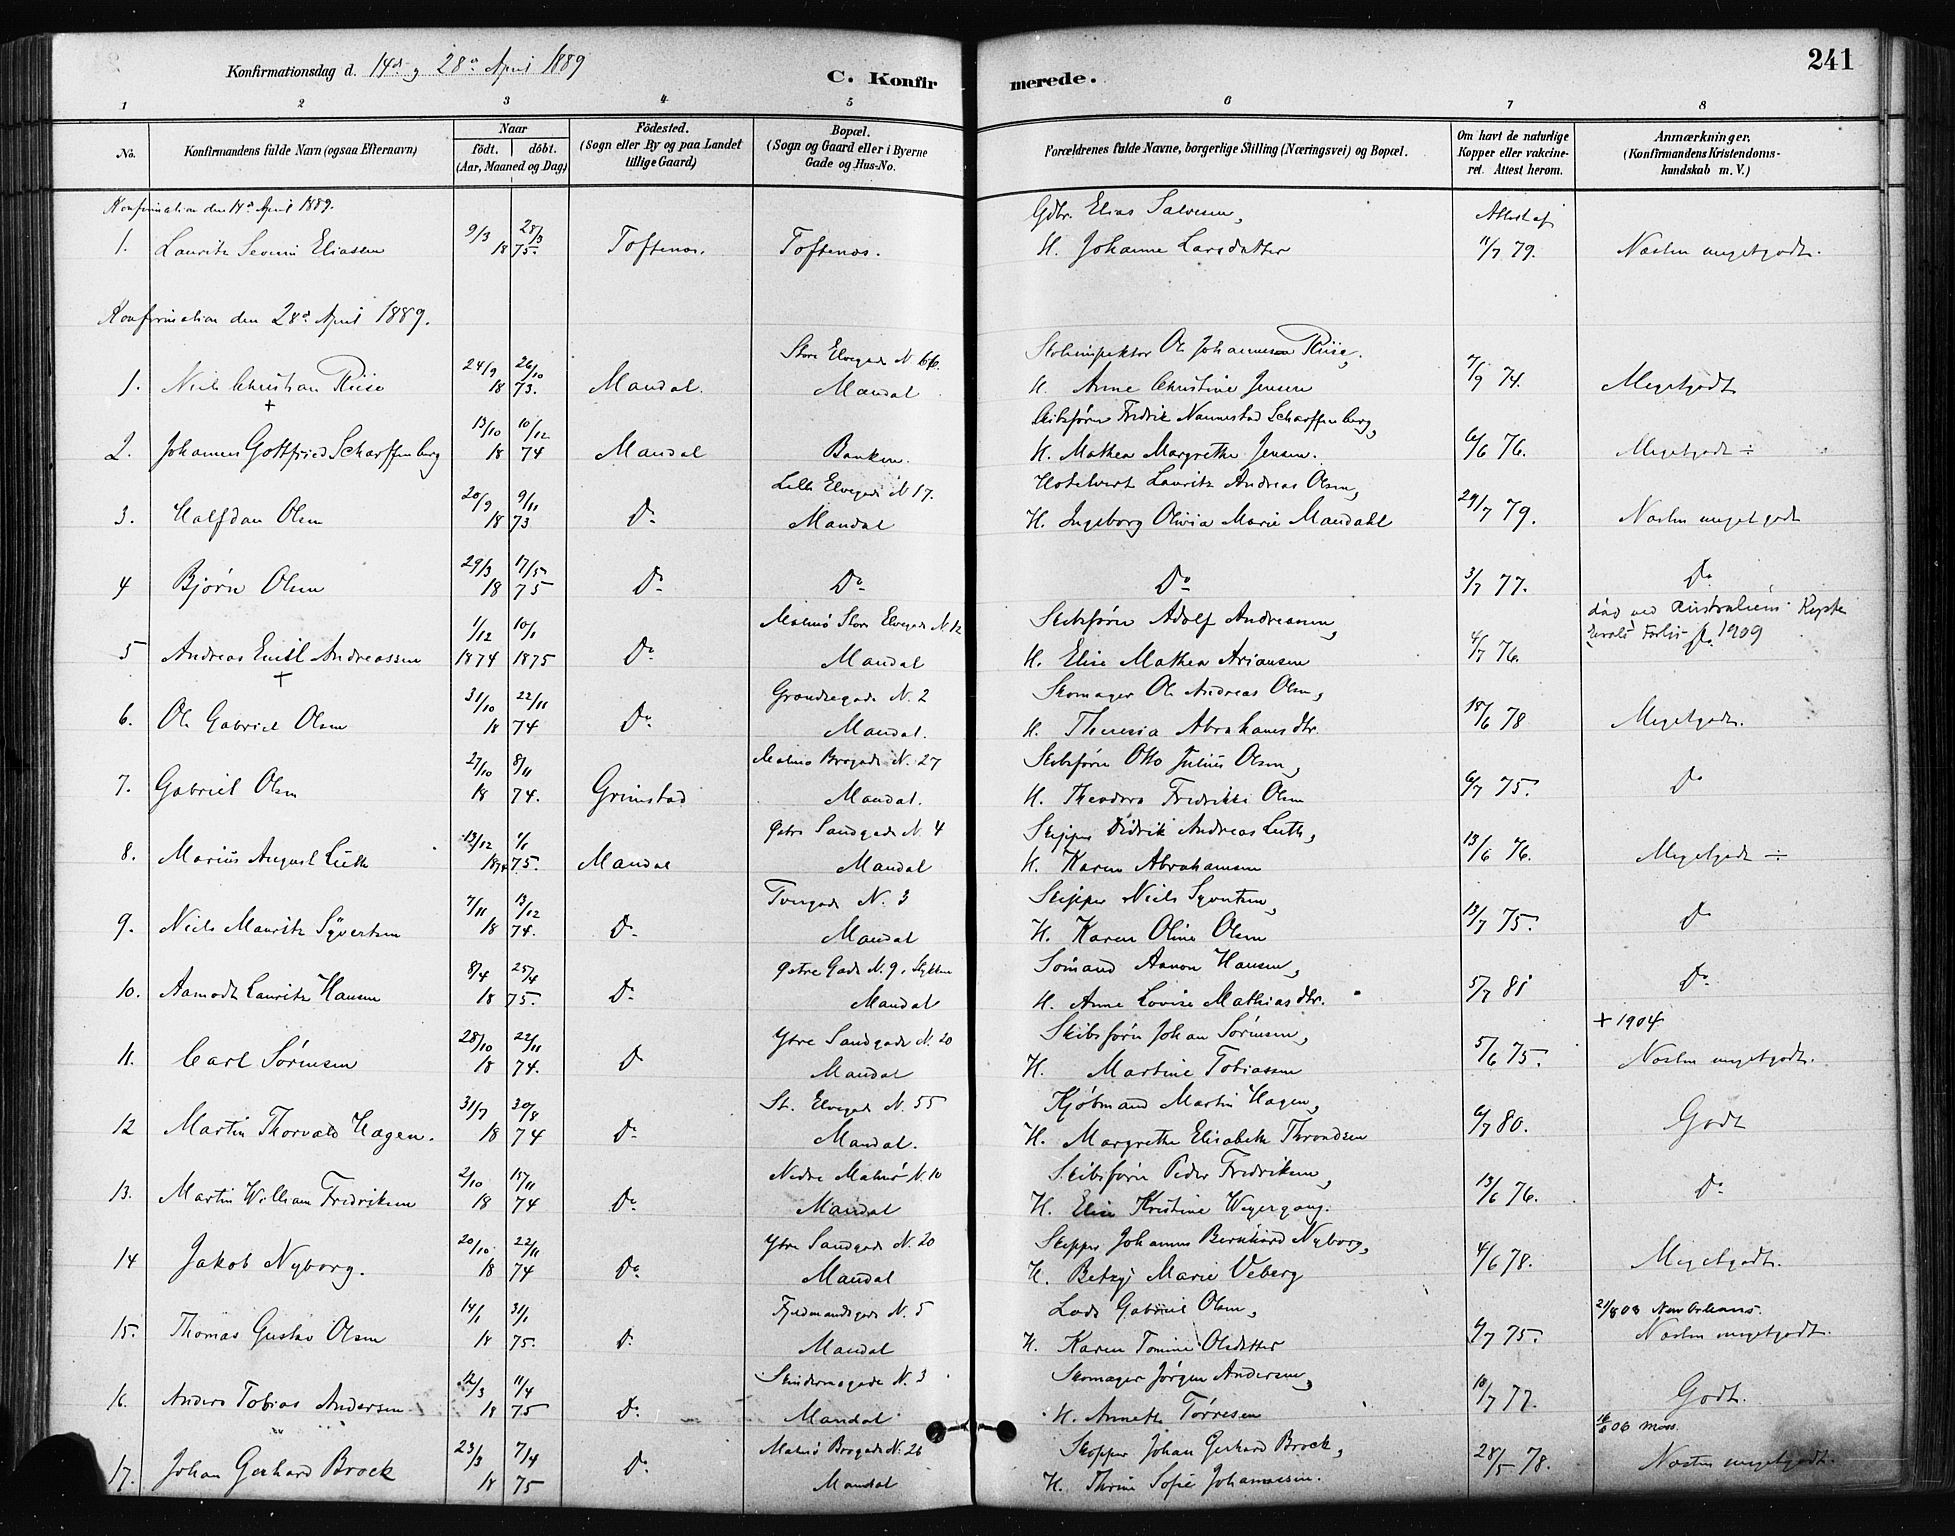 241
Konfirmationsdag d. 14de og 28de April 1889
C. Konfirmerede.
1 2 3 4 5 6 7 8
No. Konfirmandens fulde Navn (ogsaa Efternavn) Naar födt. döbt. (Aar, Maaned og Dag) Födested. (Sogn eller By og paa Landet tillige Gaard) Bopæl. (Sogn og Gaard eller i Byerne Gade og Hus-No. Forældrenes fulde Navne, borgerlige Stilling (Næringsvei) og Bopæl. Om havt de naturlige Kopper eller vakcineret. Attest herom. Anmærkninger. (Konfirmandens Kristendomskundskab m. V.)
Konfirmation den 14de April 1889.
Gdbr. Elias Salvesen, Attest af
1. Lauritz Severin Eliassen 9/3 25/3 18 75. Toftenes. Toftenes. H. Johanne Larsdatter 11/7 79. Næsten megetgodt.
Konfirmation den 28de April 1889.
Store Elvegade N. 66. Ole Johannesen Riise,
1. Niels Christian Riise 24/9 26/10 18 73. Mandal. Mandal H. Anne Christine Jensen 7/9 74. Megetgodt
+
Skibsfører Fredrik Nannestad Scharffenberg,
2. Johannes Gottfried Scharffenberg 13/10 10/12 18 74 Mandal Banken. H. Mathea Margrethe Jensen. 6/6 76. Megetgodt ÷
Lille Elvegade N 17. Hotelvert Lauritz Andreas Olsen,
3. Halfdan Olsen 20/9 9/11 18 73 Do Mandal H. Ingeborg Olivia Marie Mandahl 29/7 79. Næsten megetgodt
4 Bjørn Olsen 29/3 17/5 18 75 Do Do Do 3/7 77. Do
Malmø Store Elvegade N 12 Skibsfører Adolf Andreassen, død ved Australiens Kyst 1909
5 Andreas Emil Andreassen 1/12 10/1 1874 1875 Do Mandal H. Elise Mathea Ariansen 4/7 76.
+
N. 2 Skomager Ole Andreas Olsen,
6. Ole Gabriel Olsen 31/10 22/11 18 74 Do Mandal. H. Theresia Abrahamsdtr. 18/6 78 Megetgodt.
Malmø Brogade N. 27 Skibsfører Otto Julius Olsen,
7. Gabriel Olsen 27/10 8/11 18 74. Grimstad Mandal. H. Theodora Fredrikke Olsen 6/7 75. Do
Østre Sandgade N. 4 Skipper Didrik Andreas Luth,
8. Marius August Luth 13/12 1/1 1874 75. Mandal Mandal H. Karen Abrahamsen 13/6 76. Megetgodt ÷
Torvgade N. 3 Skipper Niels Syvertsen,
9. Niels Mauritz Syvertsen 7/11 13/12 18 74. Do Mandal H. Karen Oline Olsen 13/7 75. Do
Østre Gade N. 9. Sömand Aanon Hansen,
10. Aamodt Lauritz Hansen 8/4 25/4 18 75. Do Mandal H. Anne Lovise Mathiasdtr. 5/7 81 Do
Ytre Sandgade N. 20 Skibsfører Johan Sørensen, + 1904
11. Carl Sørensen 28/10 22/11 18 74. Do Mandal H. Martine Tobiassen 5/6 75. Næsten megetgodt.
St. Elvegade N. 55 Kjøbmand Martin Hagen,
12 Martin Thorvald Hagen. 31/7 30/8 18 74 Do Mandal. H. Margrethe Elisabeth Throndsen 6/7 80. Godt
Nedre Malmø N. 10 Skibsfører Peder Fredriksen,
13. Martin William Fredriksen 2/10 15/11 18 74 Do Mandal H. Elise Kristine Weyergang. 13/6 76. Do
Ytre Sandgade N. 20 Skipper Johannes Bernhard Nyborg,
14 Jakob Nyborg. 20/10 22/11 18 74 Do Mandal H. Betzy Marie Veberg 4/6 78. Megetgodt.
N. 5 Lods Gabriel Olsen, 21/8 08 New Orleans.
15. Thomas Gustav Olsen 14/1 31/1 18 75. Do Mandal H. Karen Tomine Olsdatter 6/7 75. Næsten megetgodt.
N. 3 Skomager Jørgen Andersen,
16. Anders Tobias Andersen 12/3 11/4 18 75 Do Mandal H. Annette Tørresen 10/7 77. Godt.
Malmø Brogade N. 26 Skipper Johan Gerhard Brock, 06 Moss.
17. Johan Gerhard Brock 23/3 7/4 18 75 Do Mandal H. Thrine Sofie Johannessen. 28/5 78. Næsten megetgodt.